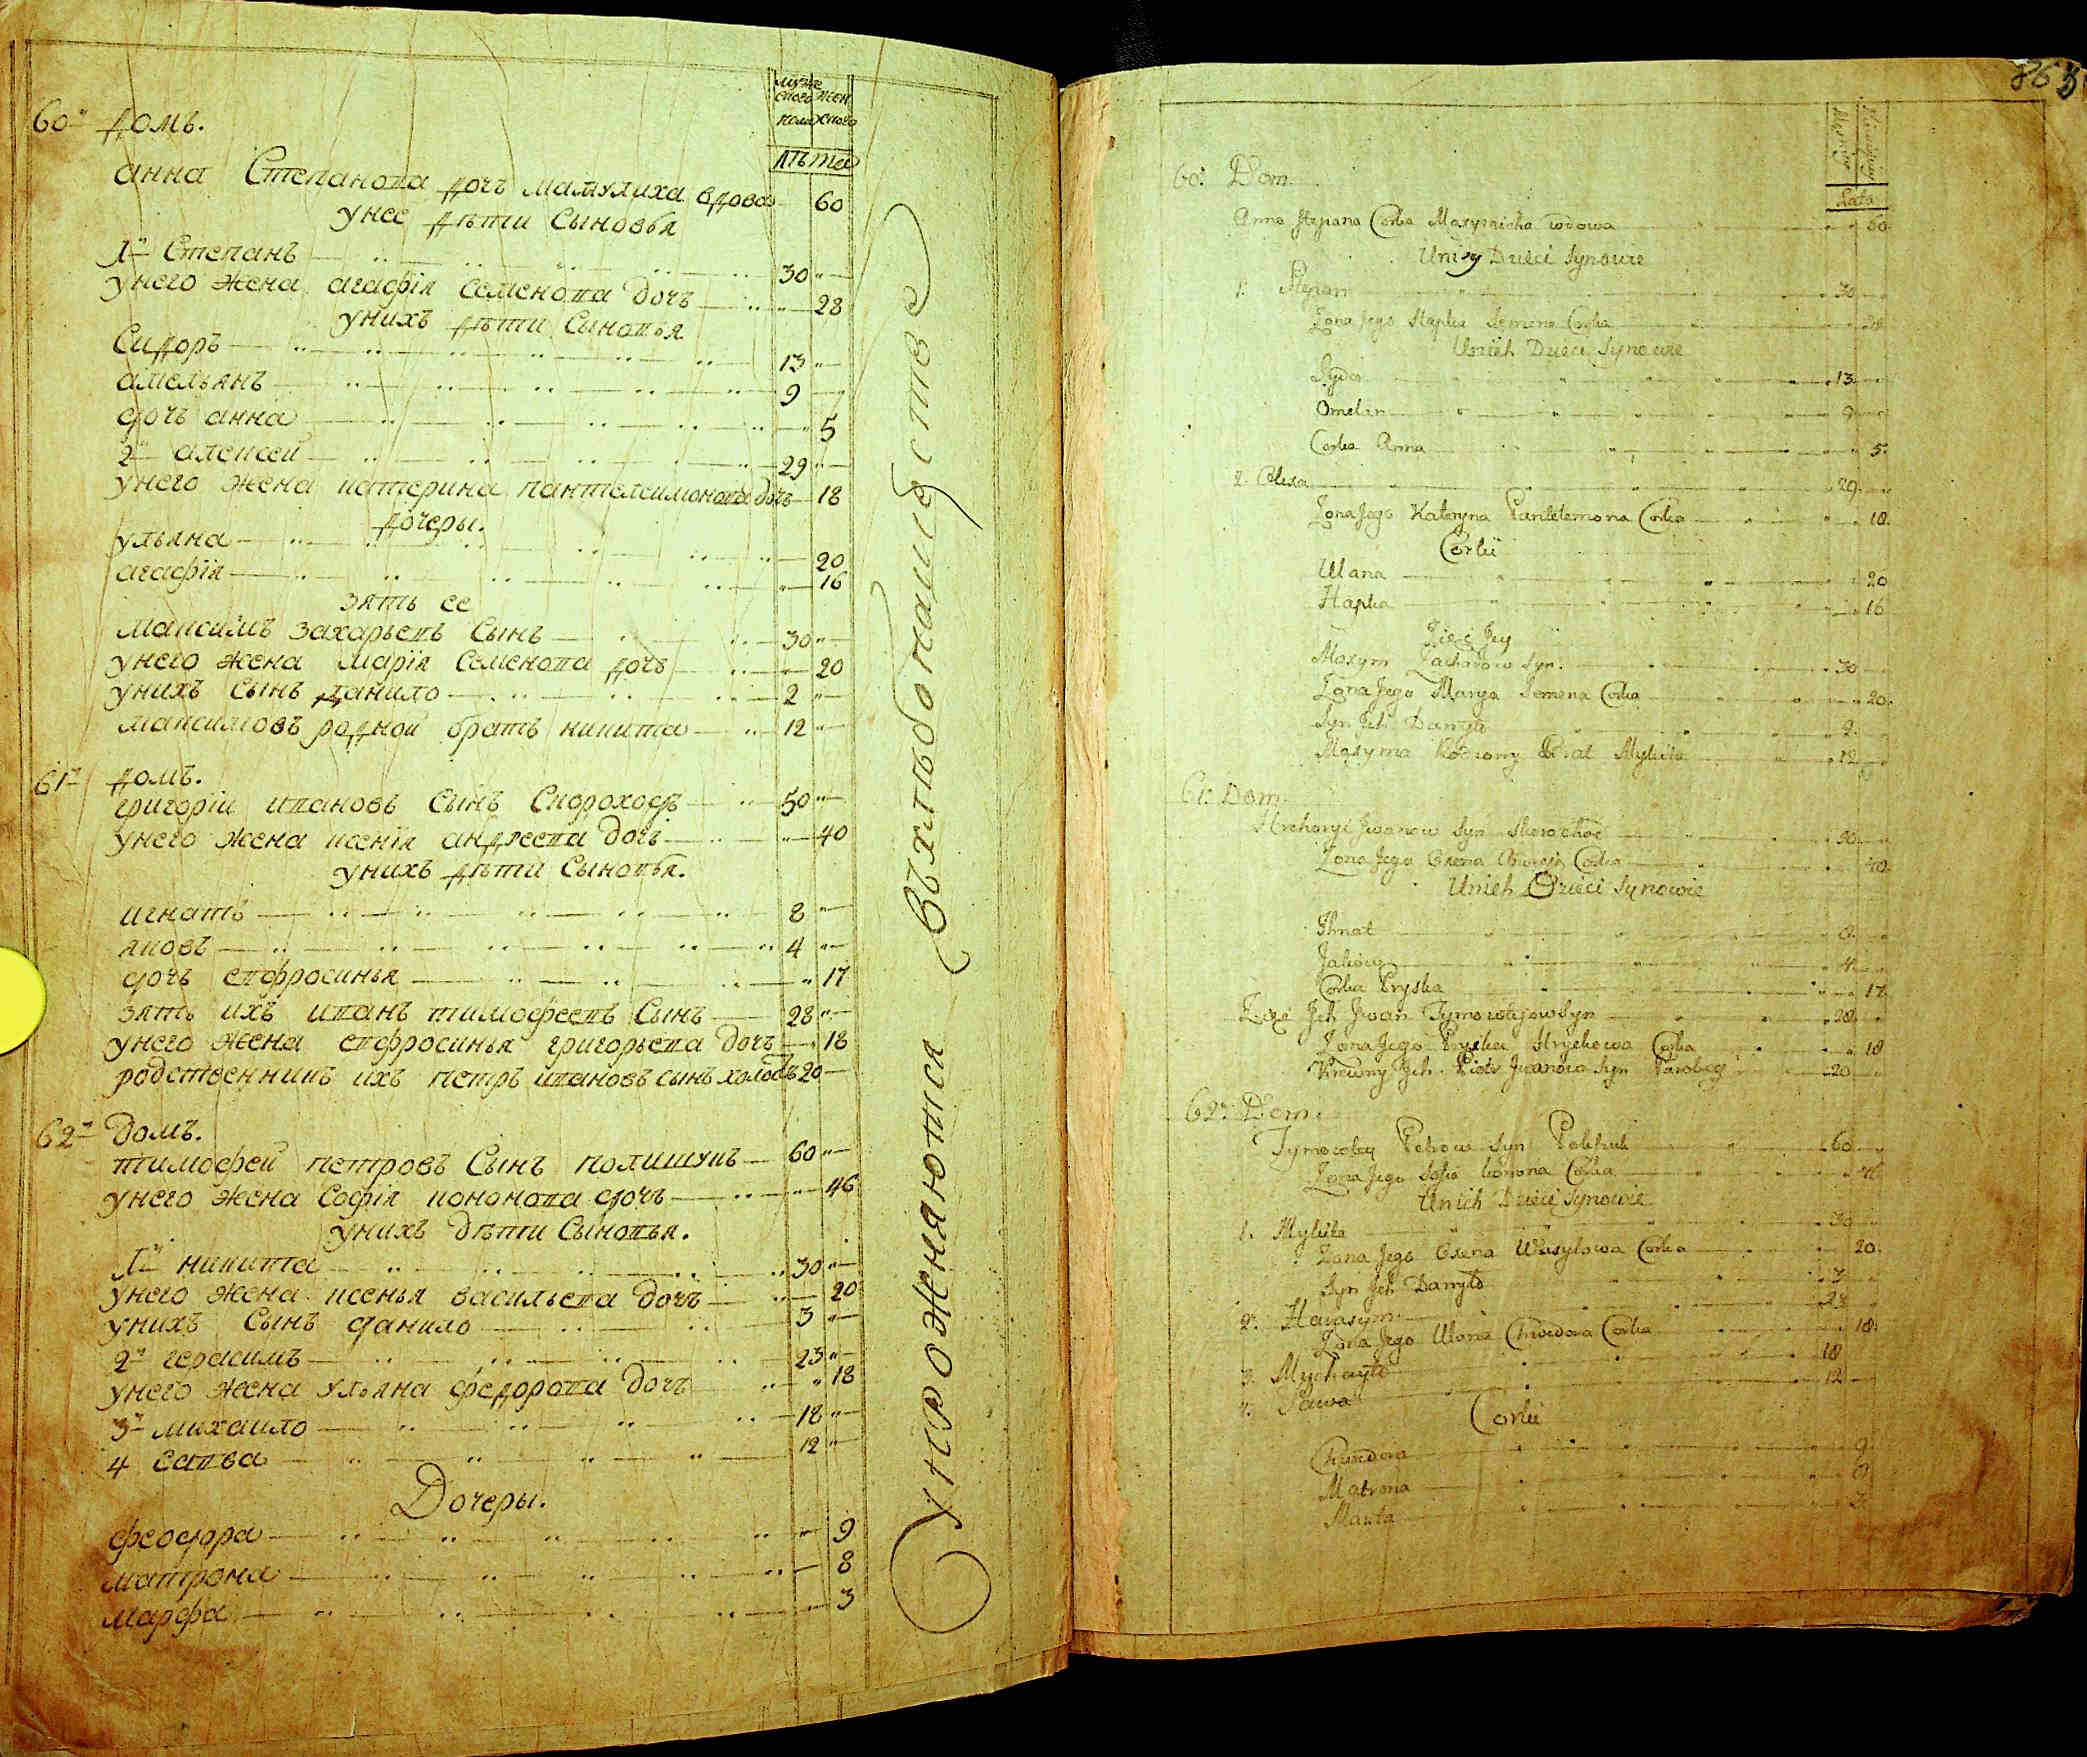 мужескаго пола
женскаго
лѣта
60й домъ.
анна Степанова дочь мамулиха вдова 60
унее дѣти Сыновья
1й Степанъ 30
унего жена агафія семенова дочь 28
унихъ дѣти Сыновья
Сидоръ 13
амельянъ 9
дочь анна 5
2й алексей 29
унего жена катерина пантелеимонова дочь 18
дочеры.
ульяна 20
агафія 16
зять ее
максимъ захарьевъ Сынъ 30
унего жена марія Семенова дочь 20
унихъ сынъ данило 2
максимовъ родной братъ никита 12
61й домъ.
григоріи ивановъ Сынъ Скороходъ 50
унего жена ксенія андреева дочь 40
унихъ дѣти Сыновья.
игнатъ 8
яковъ 4
дочь евфросинья 17
зять ихъ иванъ тимофеевъ Сынъ 28
унего жена евфросинья григорьева дочь 18
родственникъ ихъ петръ ивановъ сынъ холостъ 20
62й домъ.
тимофей петровъ Сынъ полищукъ 60
унего жена Софія кононова дочь 46
унихъ дѣти Сыновья.
1й никита 30
унего жена ксенья васильева дочь 20
унихъ Сынъ данило 3
2й герасимъ 23
унего жена ульяна федорова дочь 18
3й михаило 18
4 савва 12
Дочеры.
феодора 9
матрона 8
марфа 3
Упрожняются Вхлѣбопашествѣ
60. Dom.
Lata
Anna Stepana Corka wdowa 60
Uniey Dzieci Synowie
1. Stepan 30
Zona Jego Hapka Semena Corka 28
Unich Dzieci Synowie
Sydor 13
Omelan 9
Corka Anna 5
2. Olexa 29
Zona Jego Kateryna Pantelemona Corka 18
Corki
Ulana 20
Hapka 16
Zięć Jey
Maxym Zacharow Syn 30
Zona Jego Marya Semena Corka 20
Syn Jch Danyło 2
Maxyma Rodzony Brat Mykita 12
61. Dom
Hrehoryi Jwanow Syn Skorochod 50
Zona Jego Oxena Corka 40
Unich Dzieci Synowie
Ihnat 8
Jakow 4
Corka Pryska 17
Zięć Jch Jwan Tymowiejow Syn 28
Zona Jego Pryska Hryckowa Corka 18
Krewny Jch Piotr Jwanow Syn Parobcy 20
62. Dom.
Tymowtey Petrow Syn Poliszuk 60
Zona Jego Sofia Konona Corka 46
Unich Dzieci Synowie
1. Mykita 30
Zona Jego Oxena Wasylowa Corka 20
Syn Jch Danyło 3
2. Harasym 23
Zona Jego Ulana Chwedora Corka 18
3. Mychayło 18
4. Sawa 12
Corki
Chwedora 9
Matrona 8
Marta 3